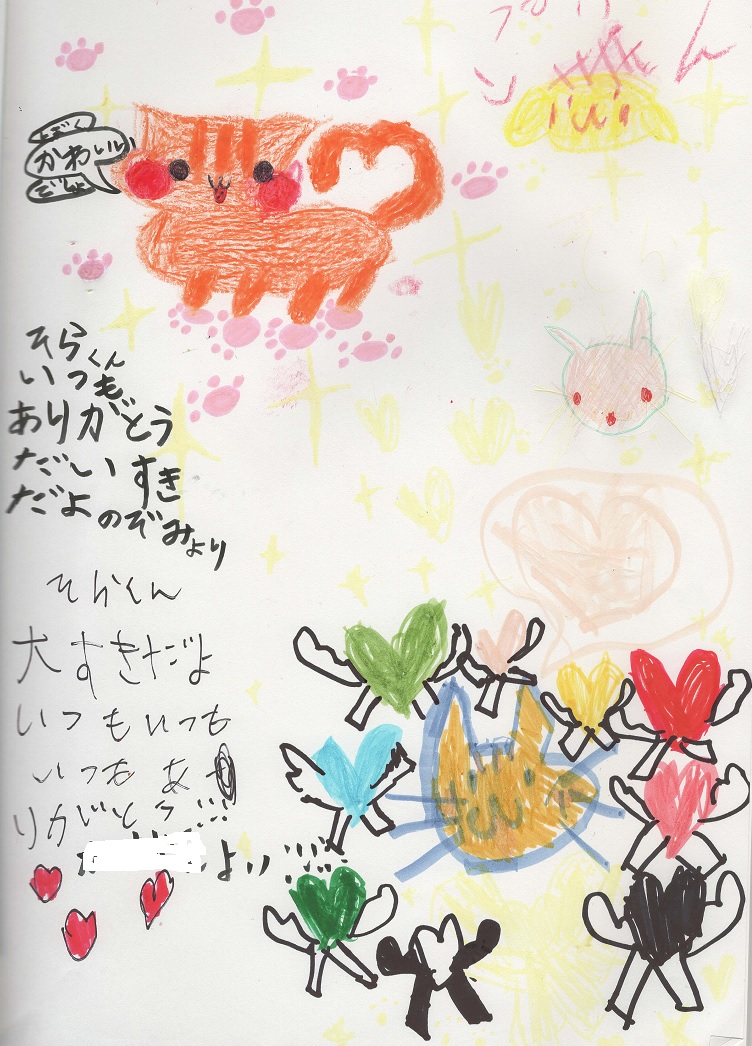 かわいい
そらくん
いつも
ありがとう
だいすき
だよ のぞみより
そらくん
大すきだよ
いつもいつも
いつも あ
りがとう!!!
より